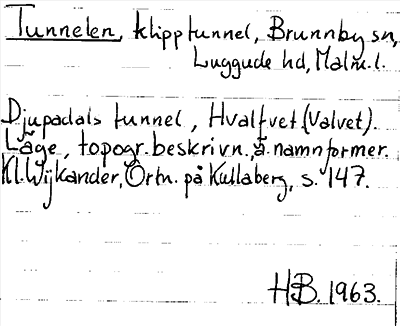 Tunnelen, klipptunnel, Brunnby sn,
Luggude hd, Malm. l.
Djupadals tunnel, Hvalfvet (Valvet).
Läge, topogr. beskrivn., ä. namnformer.
Kl. Wijkander, Ortn. på Kullaberg, s. 147.
HB. 1963.